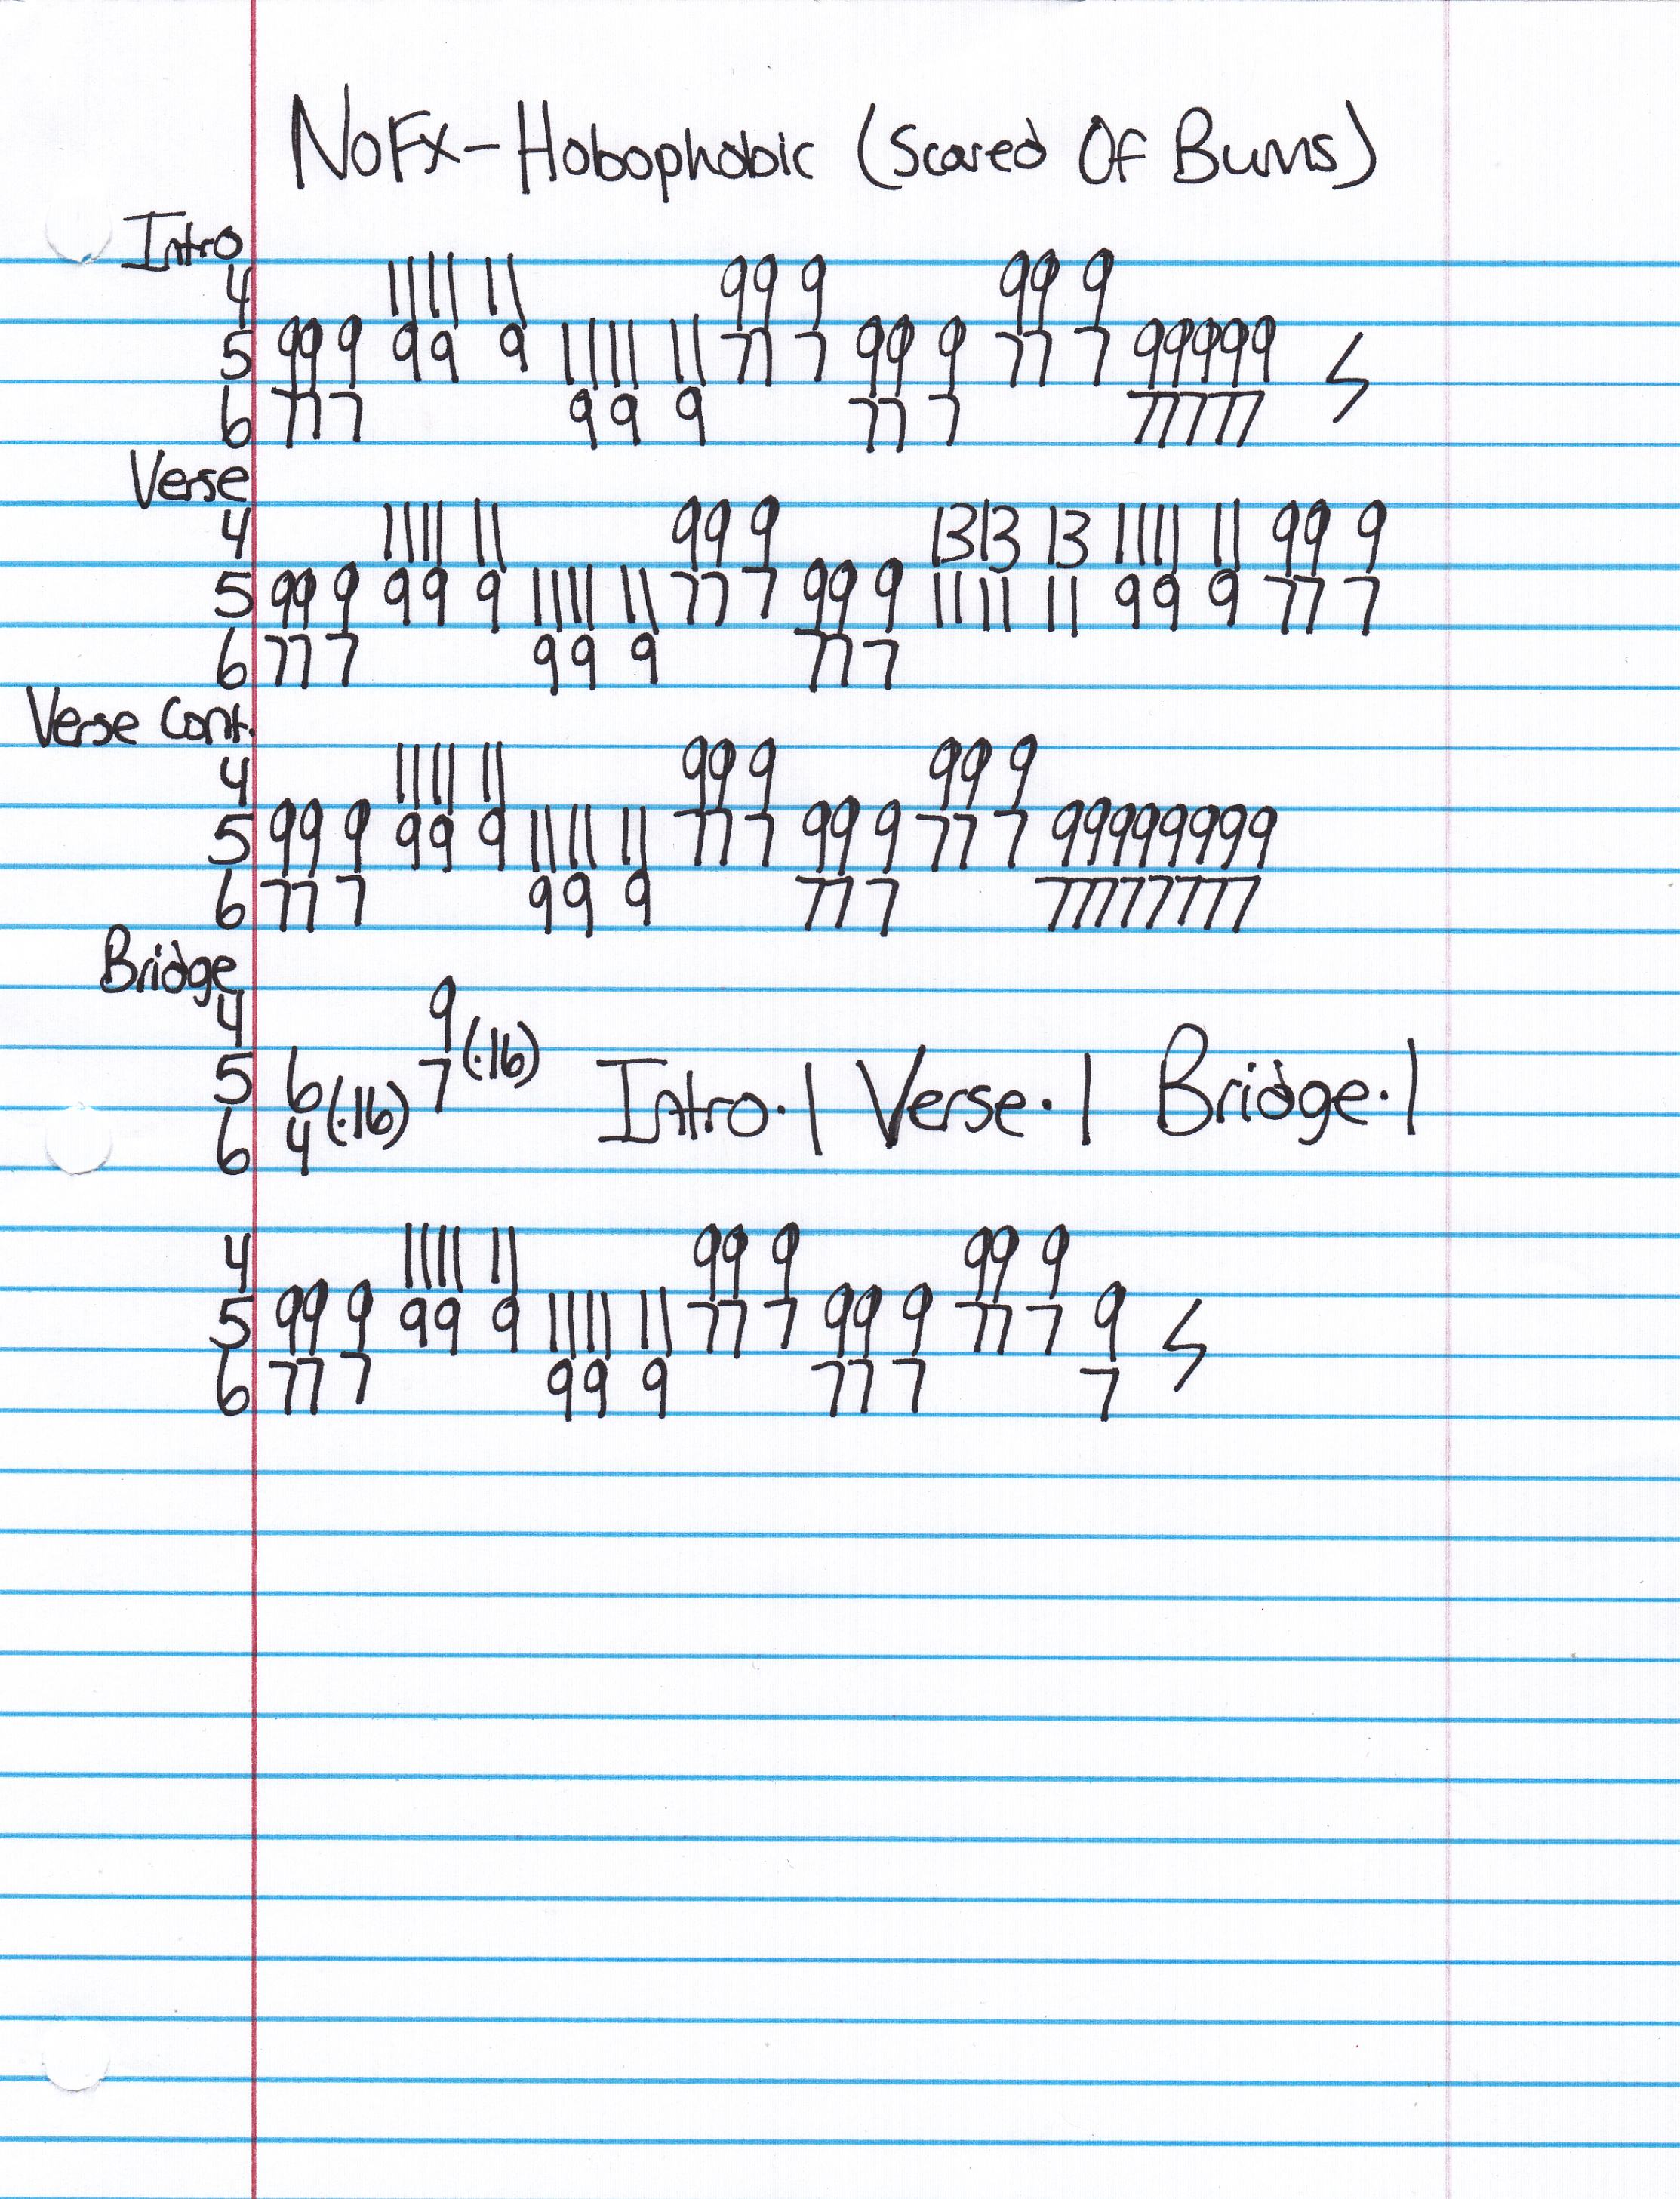 NoFx - Hobophobic (Scared Of Bums)
Intro
4 1111 11 99 9 99 9
5 99 9 99 9 1111 11 77 7 99 9 77 7 99999
6 77 7 99 9 77 7 77777
Verse
4 1111 11 99 9 1313 13 1111 11 99 9
5 99 9 99 9 1111 11 77 7 99 9 1111 11 99 9 77 7
6 77 7 99 9 77 7
Verse Cont.
4 1111 11 99 9 99 9
5 99 9 99 9 1111 11 77 7 99 9 77 7 99999999
6 77 7 99 9 77 7 77777777
Bridge
4 9
5 6 7 (·16) Intro·1 Verse·1 Bridge·1
6 4 (·16)
4 1111 11 99 9 99 9
5 99 9 99 9 1111 11 77 7 99 9 77 7 9
6 77 7 99 9 77 7 7